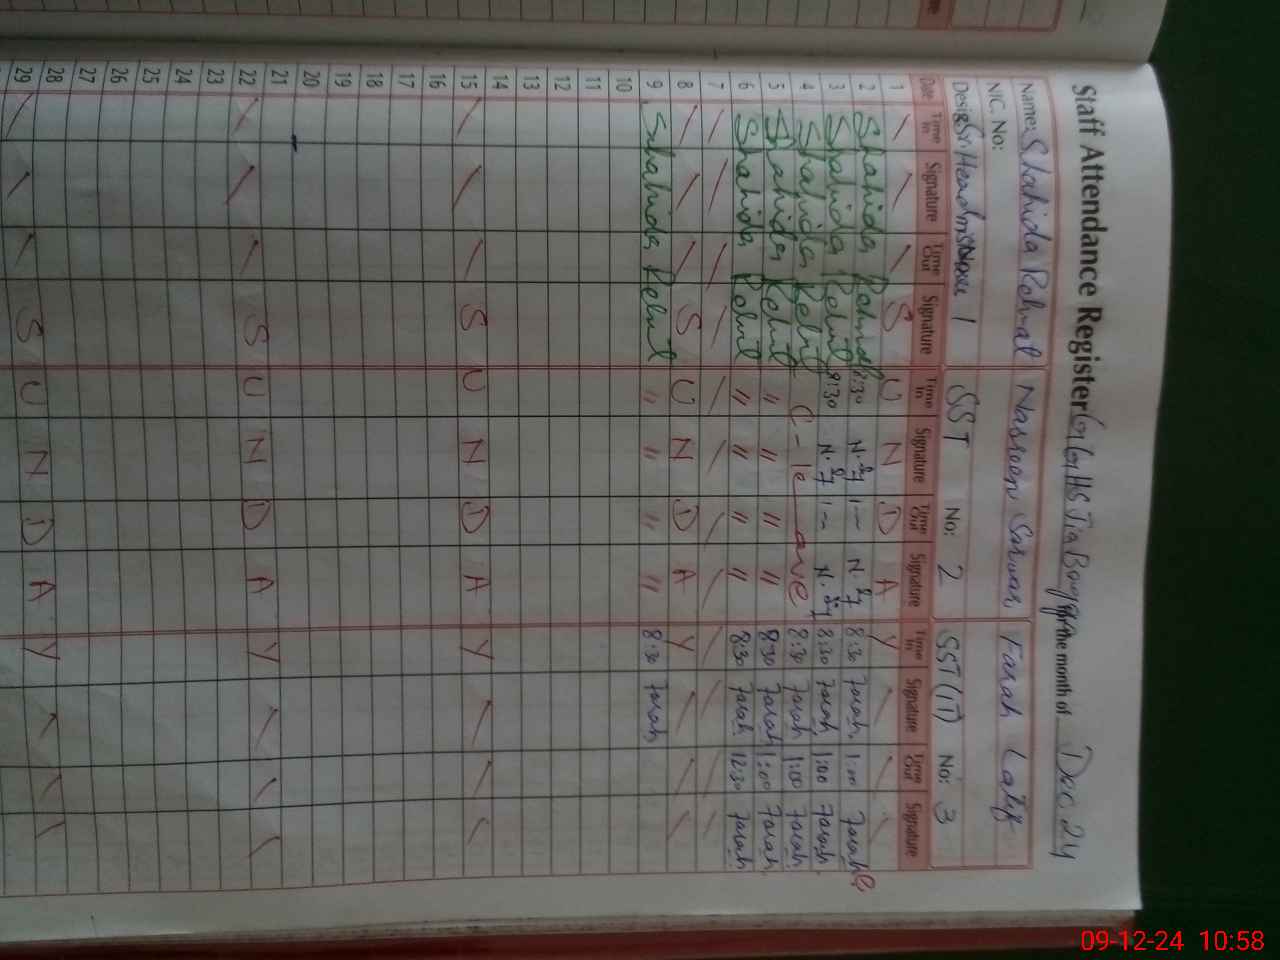 Staff Attendance Register GGHS Jia Bagga for the month of Dec. 24
Name: Shahida Rehmat Nasreen Sarwar Farah Latif
NIC. No:
Desig: Sr Headmistress 1 SST No: 2 SST (IT) No: 3
Date Time In Signature Time Out Signature Time In Signature Time Out Signature Time In Signature Time Out Signature
1 S U N D A Y
2 Shahida Rehmat 8:30 8:30 Farah 1:00 Farah
3 Shahida Rehmat 8:30 8:30 Farah 1:00 Farah
4 Shahida Rehmat C-leave 8:30 Farah 1:00 Farah
5 Shahida Rehmat " " " " 8:30 Farah 1:00 Farah
6 Shahida Rehmat " " " " 8:30 Farah 12:30 Farah
7
8 S U N D A Y
9 Shahida Rehmat " " " " 8:30 Farah
10
11
12
13
14
15 S U N D A Y
16
17
18
19
20
21
22 S U N D A Y
23
24
25
26
27
28
29 S U N D A Y
09-12-24 10:58